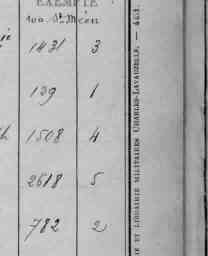 EXEMPLE
100 St Méen
1431 3
139 1
1508 4
2618 5
782 2
IE ET LIBRAIRIE MILITAIRES CHARLES-LAVAUZELLE. —